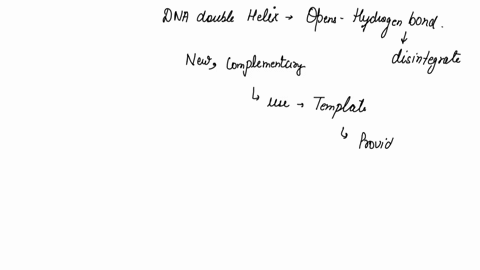 DNA double Helix → Opens - Hydrogen bond.
↓
disintegrate
New, Complementary
↳ use → Template
↳ Provid